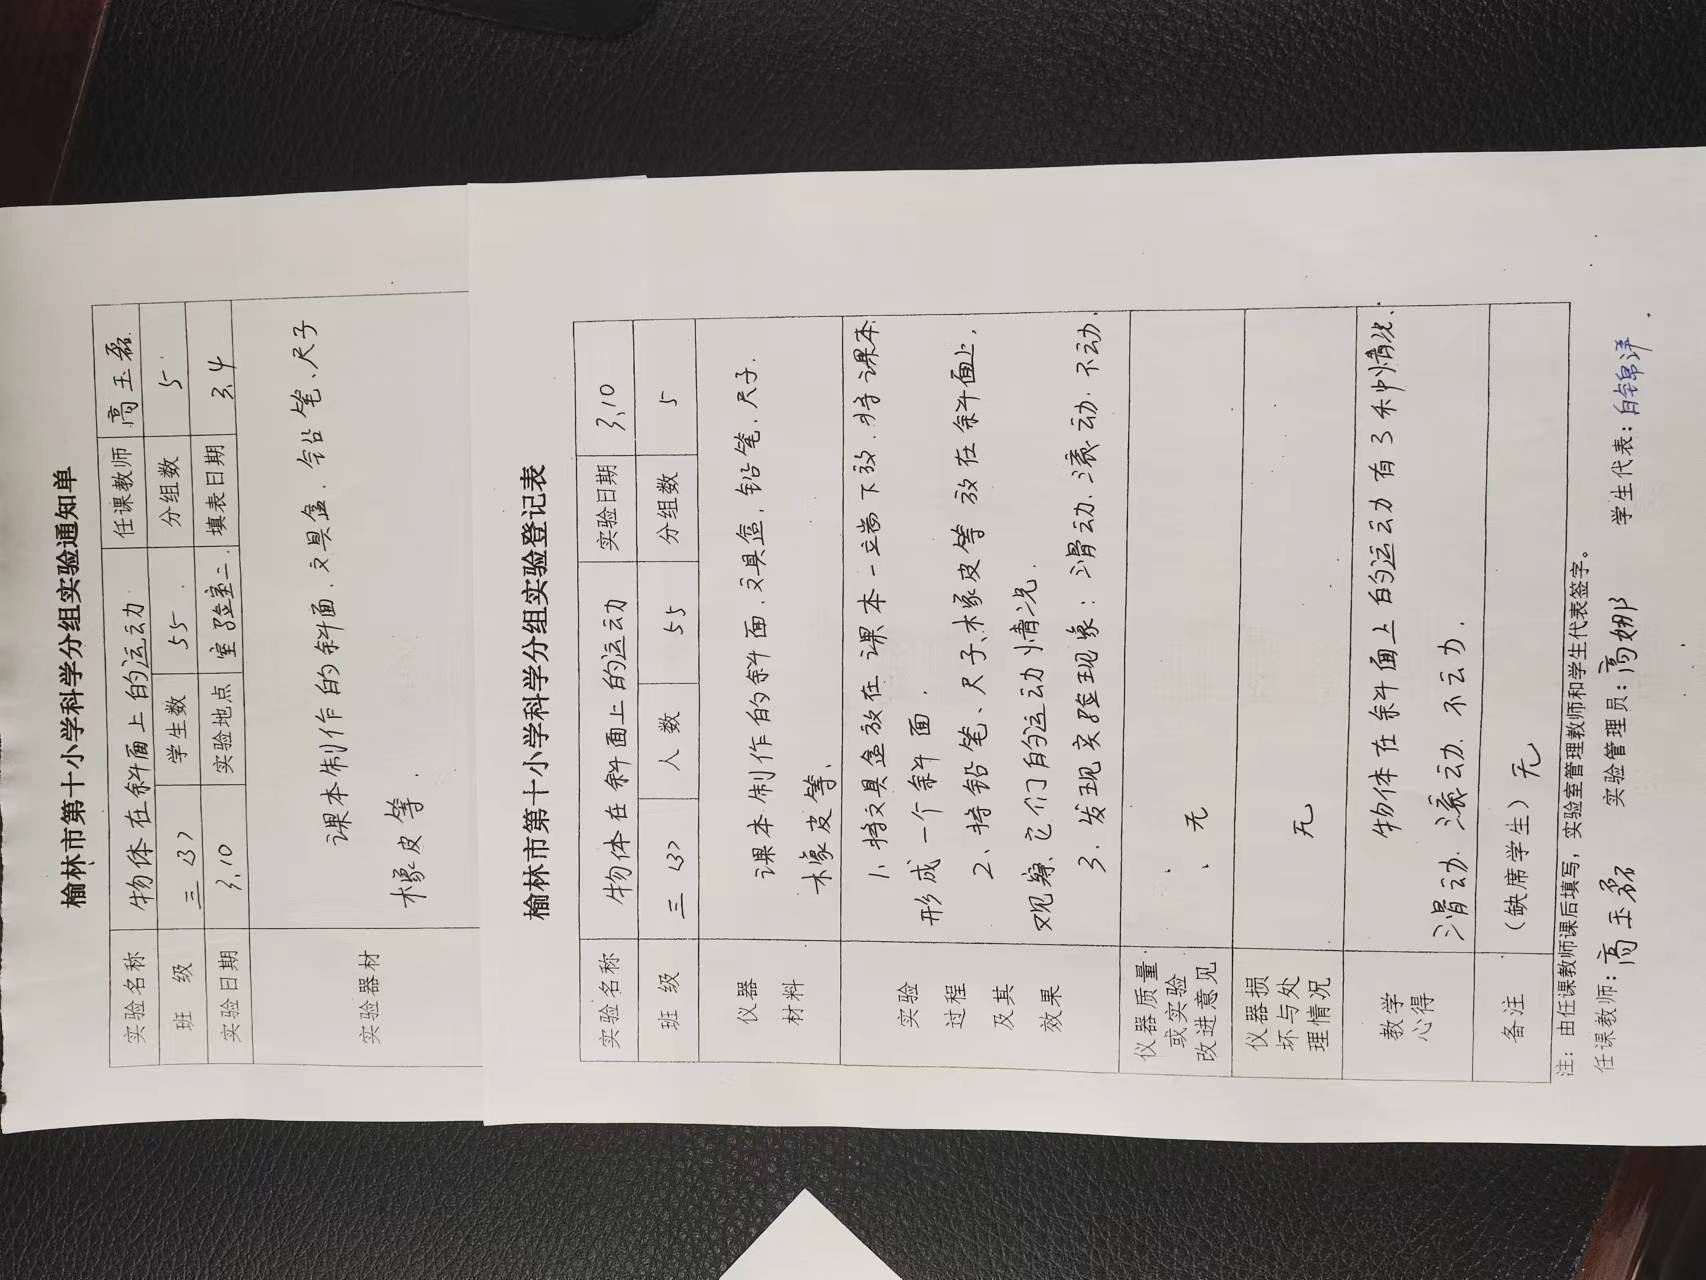 榆林市第十小学科学分组实验通知单
实验名称 物体在斜面上的运动 任课教师 高玉磊
班 级 三(3) 学生数 55 分组数 5
实验日期 3.10 实验地点 实验室二 填表日期 3.4
实验器材 课本制作的斜面、文具盒、铅笔、尺子
橡皮等.
榆林市第十小学科学分组实验登记表
实验名称 物体在斜面上的运动 实验日期 3.10
班 级 三(3) 人 数 55 分组数 5
仪器 课本制作的斜面、文具盒、铅笔、尺子.
材料 橡皮等、
1、将文具盒放在课本一端下放.将课本
实验 形成一个斜面.
过程 2、将铅笔、尺子、橡皮等放在斜面上,
及其 观察它们的运动情况.
效果 3. 发现实验现象:滑动、滚动、不动.
仪器质量
或实验
改进意见 无
仪器损
坏与处 无
理情况
教学 物体在斜面上的运动有3种情况、
心得 滑动、滚动、不动.
备注 (缺席学生) 无
注:由任课教师课后填写,实验室管理教师和学生代表签字。
任课教师:高玉磊 实验管理员:高娜 学生代表:白锦洋